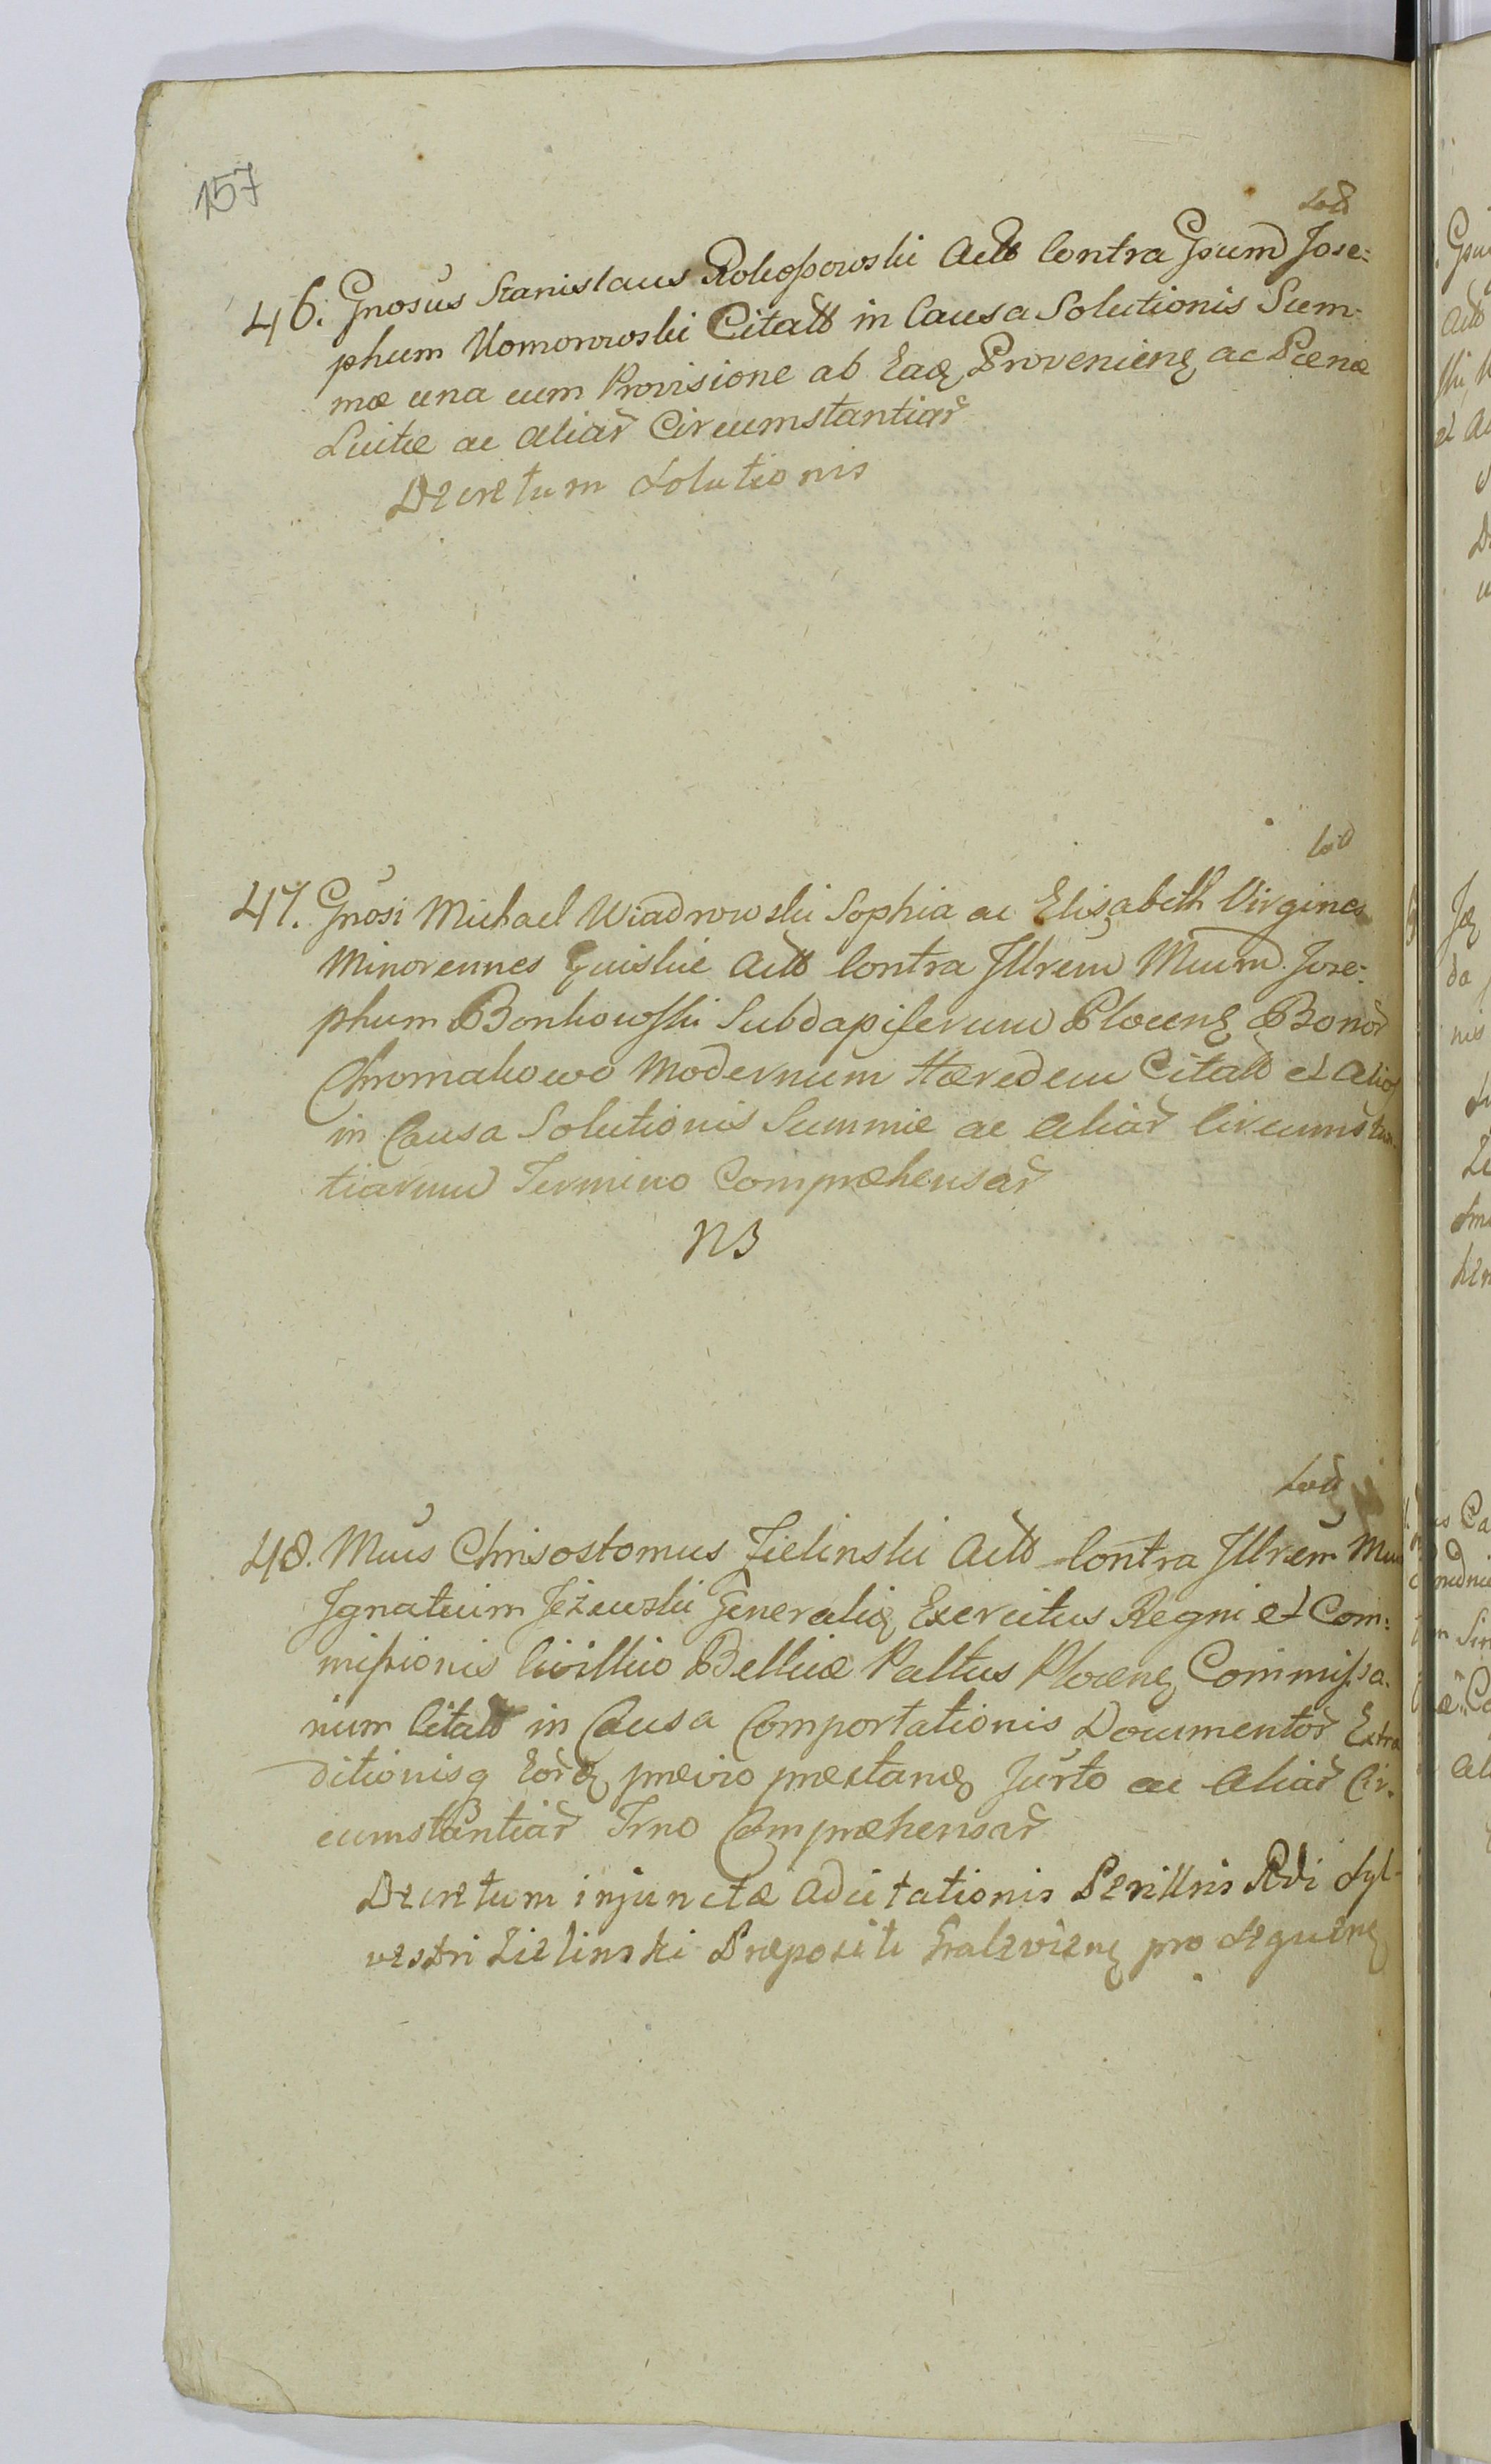 157
46. Gnosus Stanislaus Rokoszowski Actt Contra Gsum Jose:
phum Komorowski Citatt in Causa Solutionis Sum:
mæ una cum Provisione ab Eadꝫ Provenienꝫ ac Pœnæ
Luitæ ac aliar Circumstantiar
Decretum Solutionis
47. Gnosi Michael Wiadrowski Sophia ac Elisabeth Virgines
Minorennes Actt Contra Illrem Mcum Jose:
phum Bonkowski Subdapiferum Plocenꝫ Bonor
Chromakowo Modernum Hæredem Citatt et alios
in Causa Solutionis Summæ ac aliar Circumstan
tiarum Termino Compræhensar
NB
48. Mcus Chrisostomus Zielinski Actt Contra Illrem Mcum
Ignatium Jeżewski Generalꝫ Exercitus Regni et Com:
missionis Civillico Bellicæ Pallus Plocenꝫ Commissa.
rium Citatt in Causa Comportationis Documentor Extra
ditionisq Eordꝫ prævio præstanꝫ Jurto ac aliar Cir.
cumstantiar Trno Compræhensar
Decretum injunctæ adcitationis Perillris Rdi Syl-
vestri Zielinski Præpositi pro Sequenꝫ